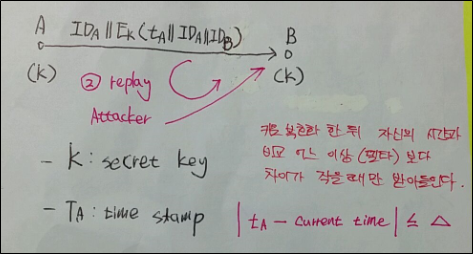 A ID_A || E_K (t_A || ID_A || ID_B) B
(K) (K)
② replay
Attacker
키로 복호화 한 뒤 자신의 시간과
비교 어느 이상 (델타) 보다
차이가 작을 때만 받아들인다.
- K : secret key
- T_A : time stamp
| t_A - current time | ≤ △